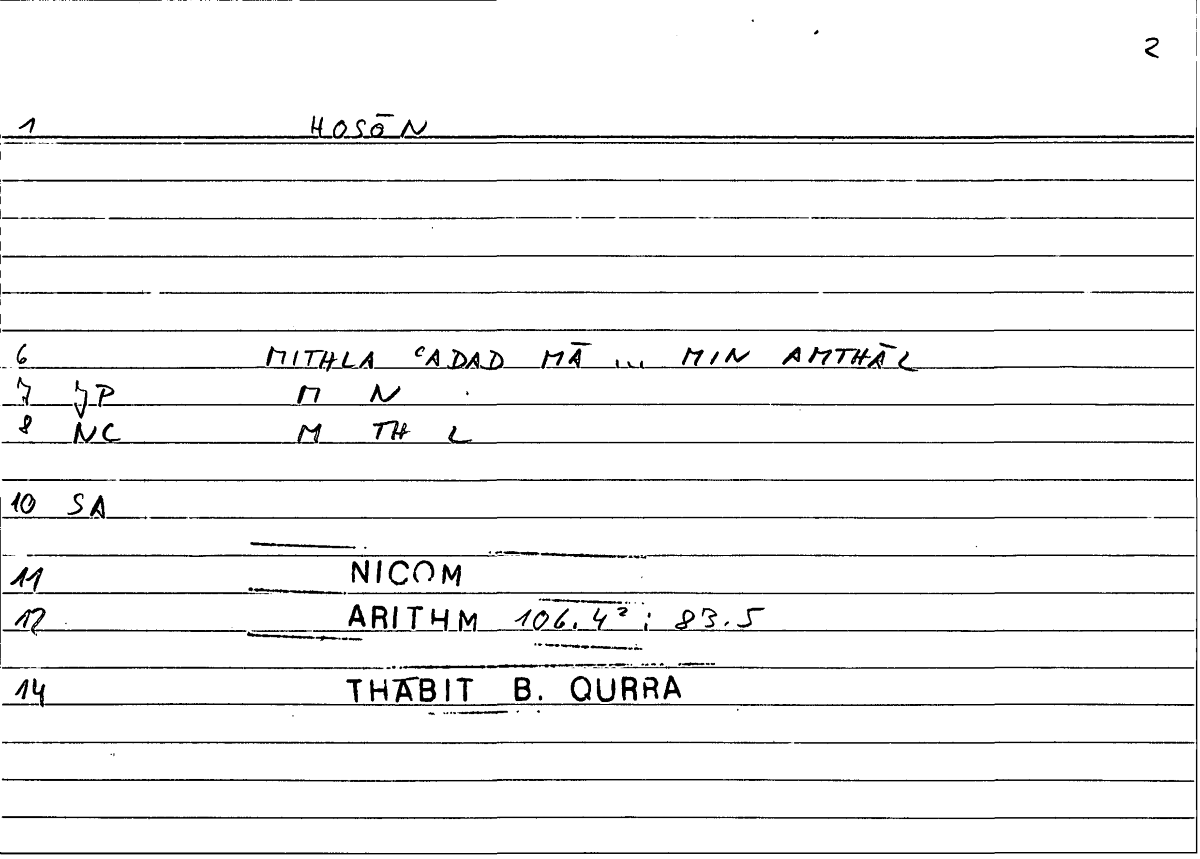 2
1 HOSŌN
6 MITHLA ʿADAD MĀ ... MIN AMTHĀL
7 JP M N
8 NC M TH L
10 SA
11 NICOM
12 ARITHM 106.4²; 83.5
14 THĀBIT B. QURRA